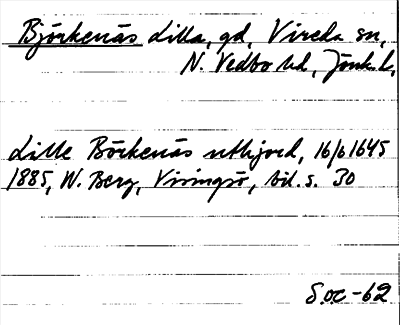 Björkenäs Lilla, gd, Vireda sn,
N. Vedbo hd, Jönk. l,
Litle Börkenäs uthjord, 16/6 1645
1885, W. Berg, Visingsö, bil. s. 30
S.oc -62